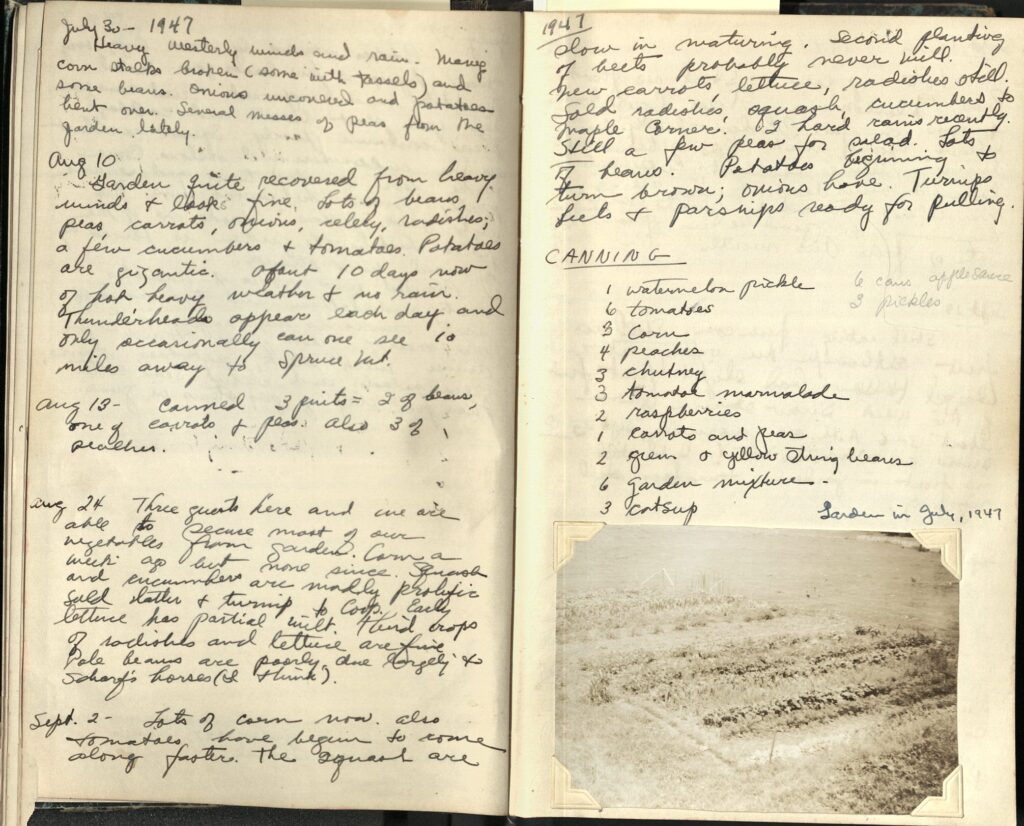 July 30 - 1947
Heavy westerly winds and rain. Many
corn stalks broken (some with tassels) and
some beans. Onions uncovered and potatoes
bent over. Several messes of peas from the
garden lately.
Aug 10
Garden quite recovered from heavy
winds & looks fine. Lots of beans,
peas, carrots, onions, celery, radishes;
a few cucumbers & tomatoes. Potatoes
are gigantic. About 10 days now
of hot heavy weather & no rain.
Thunderheads appear each day and
only occasionally can one see 10
miles away to Spruce Mt.
Aug 13 - Canned 3 pints = 2 of beans,
one of carrots & peas. Also 3 of
peaches.
Aug 24 Three guests here and we are
able to secure most of our
vegetables from garden. Corn a
week ago but none since. Squash
and cucumbers are madly prolific
Sold latter & turnip to Coop. Early
lettuce has partial wilt. Third crops
of radishes and lettuce are fine
Pole beans are poorly, due largely to
Scharf's horses (I think).
Sept. 2 - Lots of corn now. Also
tomatoes have begun to come
along faster. The squash are
1947
slow in maturing. Second planting
of beets probably never will.
New carrots, lettuce, radishes still.
Sold radishes, squash, cucumbers to
Maple Corner. 2 hard rains recently.
Still a few peas for salad. Lots
of beans. Potatoes beginning to
turn brown; onions have. Turnips
beets & parsnips ready for pulling.
CANNING
1 watermelon pickle
6 tomatoes
3 corn
4 peaches
3 chutney
3 tomatoe marmalade
2 raspberries
1 carrots and peas
2 green & yellow string beans
6 garden mixture -
3 catsup
6 cans apple sauce
3 pickles
Garden in July, 1947